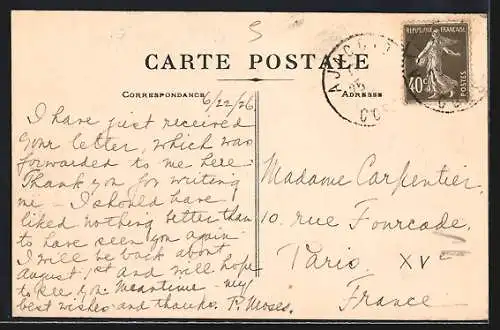 5
CARTE POSTALE
CORRESPONDANCE
ADRESSE
6/22/26
I have just received
your letter, which was
forwarded to me here
Thank you for writing
me – I should have
liked nothing better than
to have seen you again
I will be back about
August 1st and will hope
to see you. Meantime – my
best wishes and thanks. P. Moses.
Madame Carpentier
10. rue Fourcade.
Paris XVe
France
REPUBLIQUE FRANÇAISE
40c
POSTES
AJACCIO
CORSE